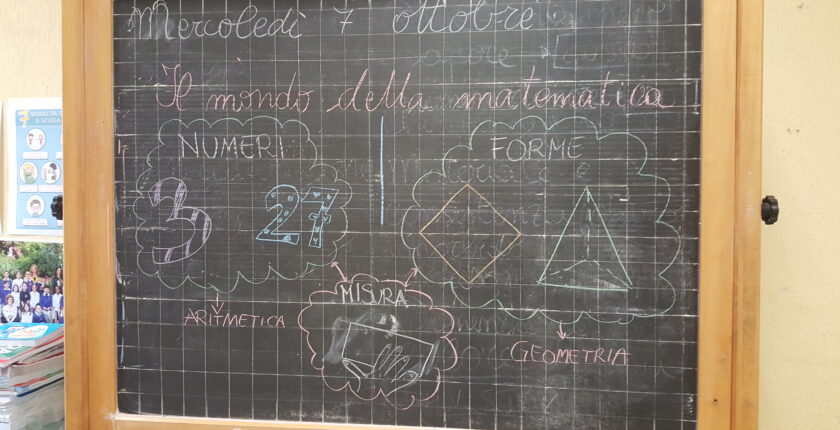 Mercoledì 7 ottobre
Il mondo della matematica
NUMERI
FORME
3
27
MISURA
ARITMETICA
GEOMETRIA